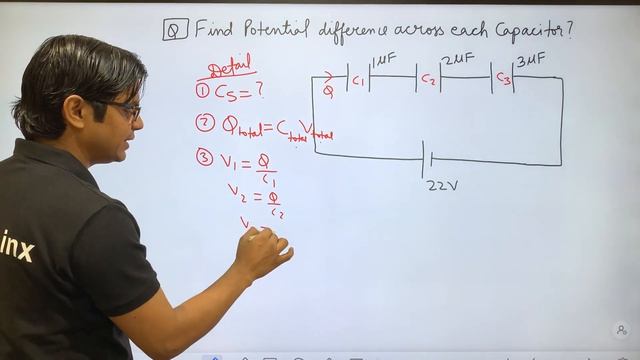 Q Find Potential difference across each Capacitor?
Detail
① Cs = ?
② Qtotal = Ctotal Vtotal
③ V1 = Q/C1
V2 = Q/C2
V
1μF 2μF 3μF
C1 C2 C3
Q
22V
inx